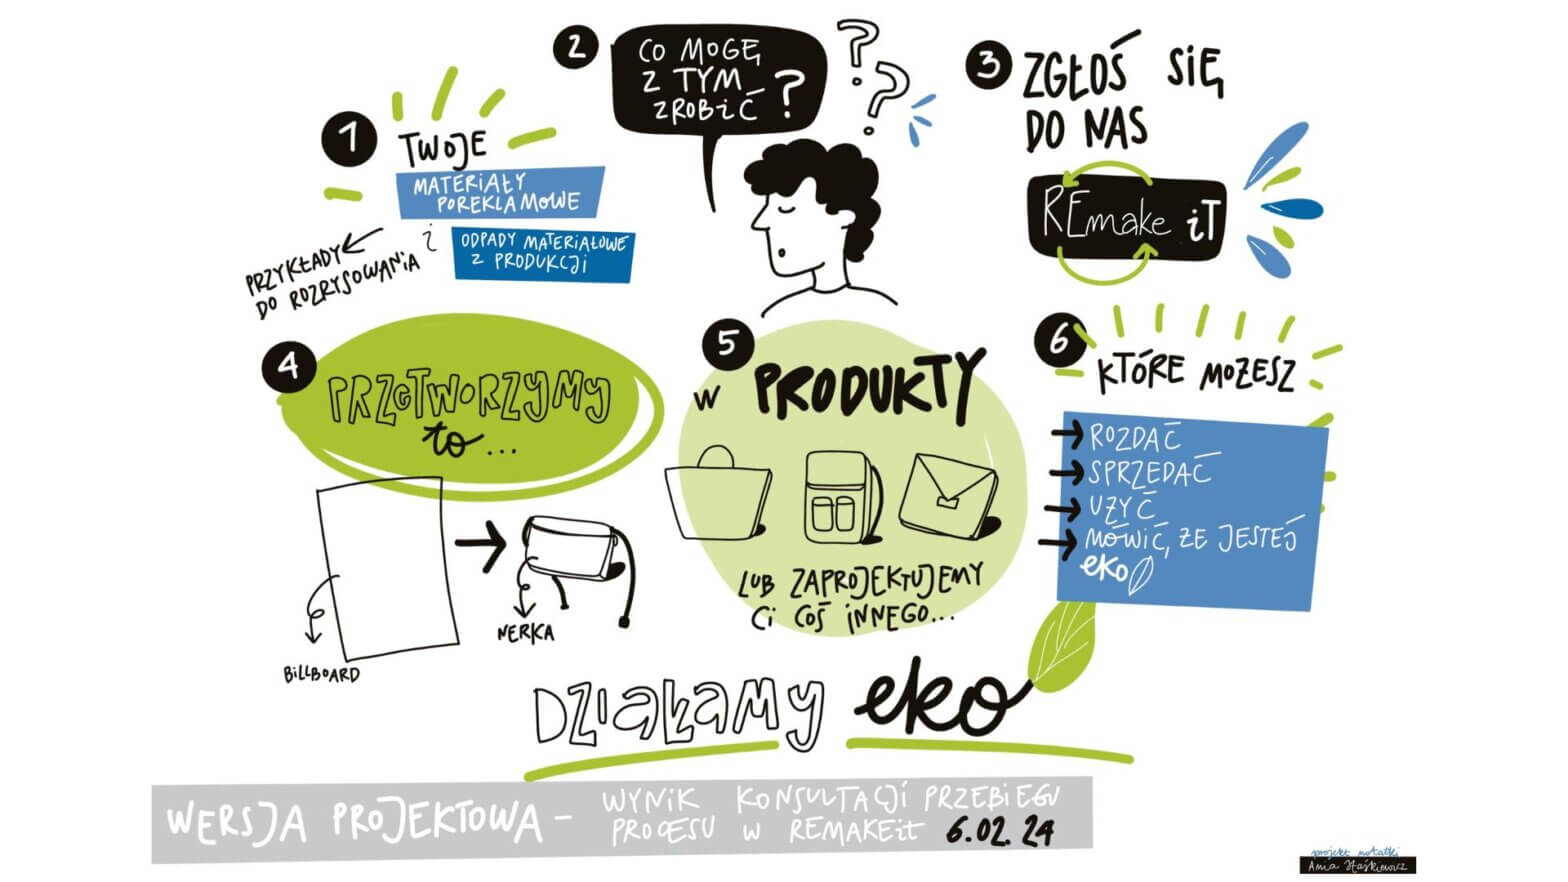 1
TWOJE
MATERIAŁY
POREKLAMOWE
i
ODPADY MATERIAŁOWE
Z PRODUKCJI
PRZYKŁADY
DO ROZRYSOWANIA
2
CO MOGĘ
Z TYM
ZROBIĆ?
? ?
3
ZGŁOŚ SIĘ
DO NAS
REmake iT
4
PRZETWORZYMY
to...
BILLBOARD
NERKA
5
w PRODUKTY
LUB ZAPROJEKTUJEMY
Ci COŚ INNEGO...
6
KTÓRE MOŻESZ
ROZDAĆ
SPRZEDAĆ
UŻYĆ
MÓWIĆ, ŻE JESTEŚ
eko
DZIAŁAMY eko
WERSJA PROJEKTOWA - WYNIK KONSULTACJI PRZEBIEGU
PROCESU W REMAKEit 6.02.24
projekt notatki
Ania Haśkiewicz